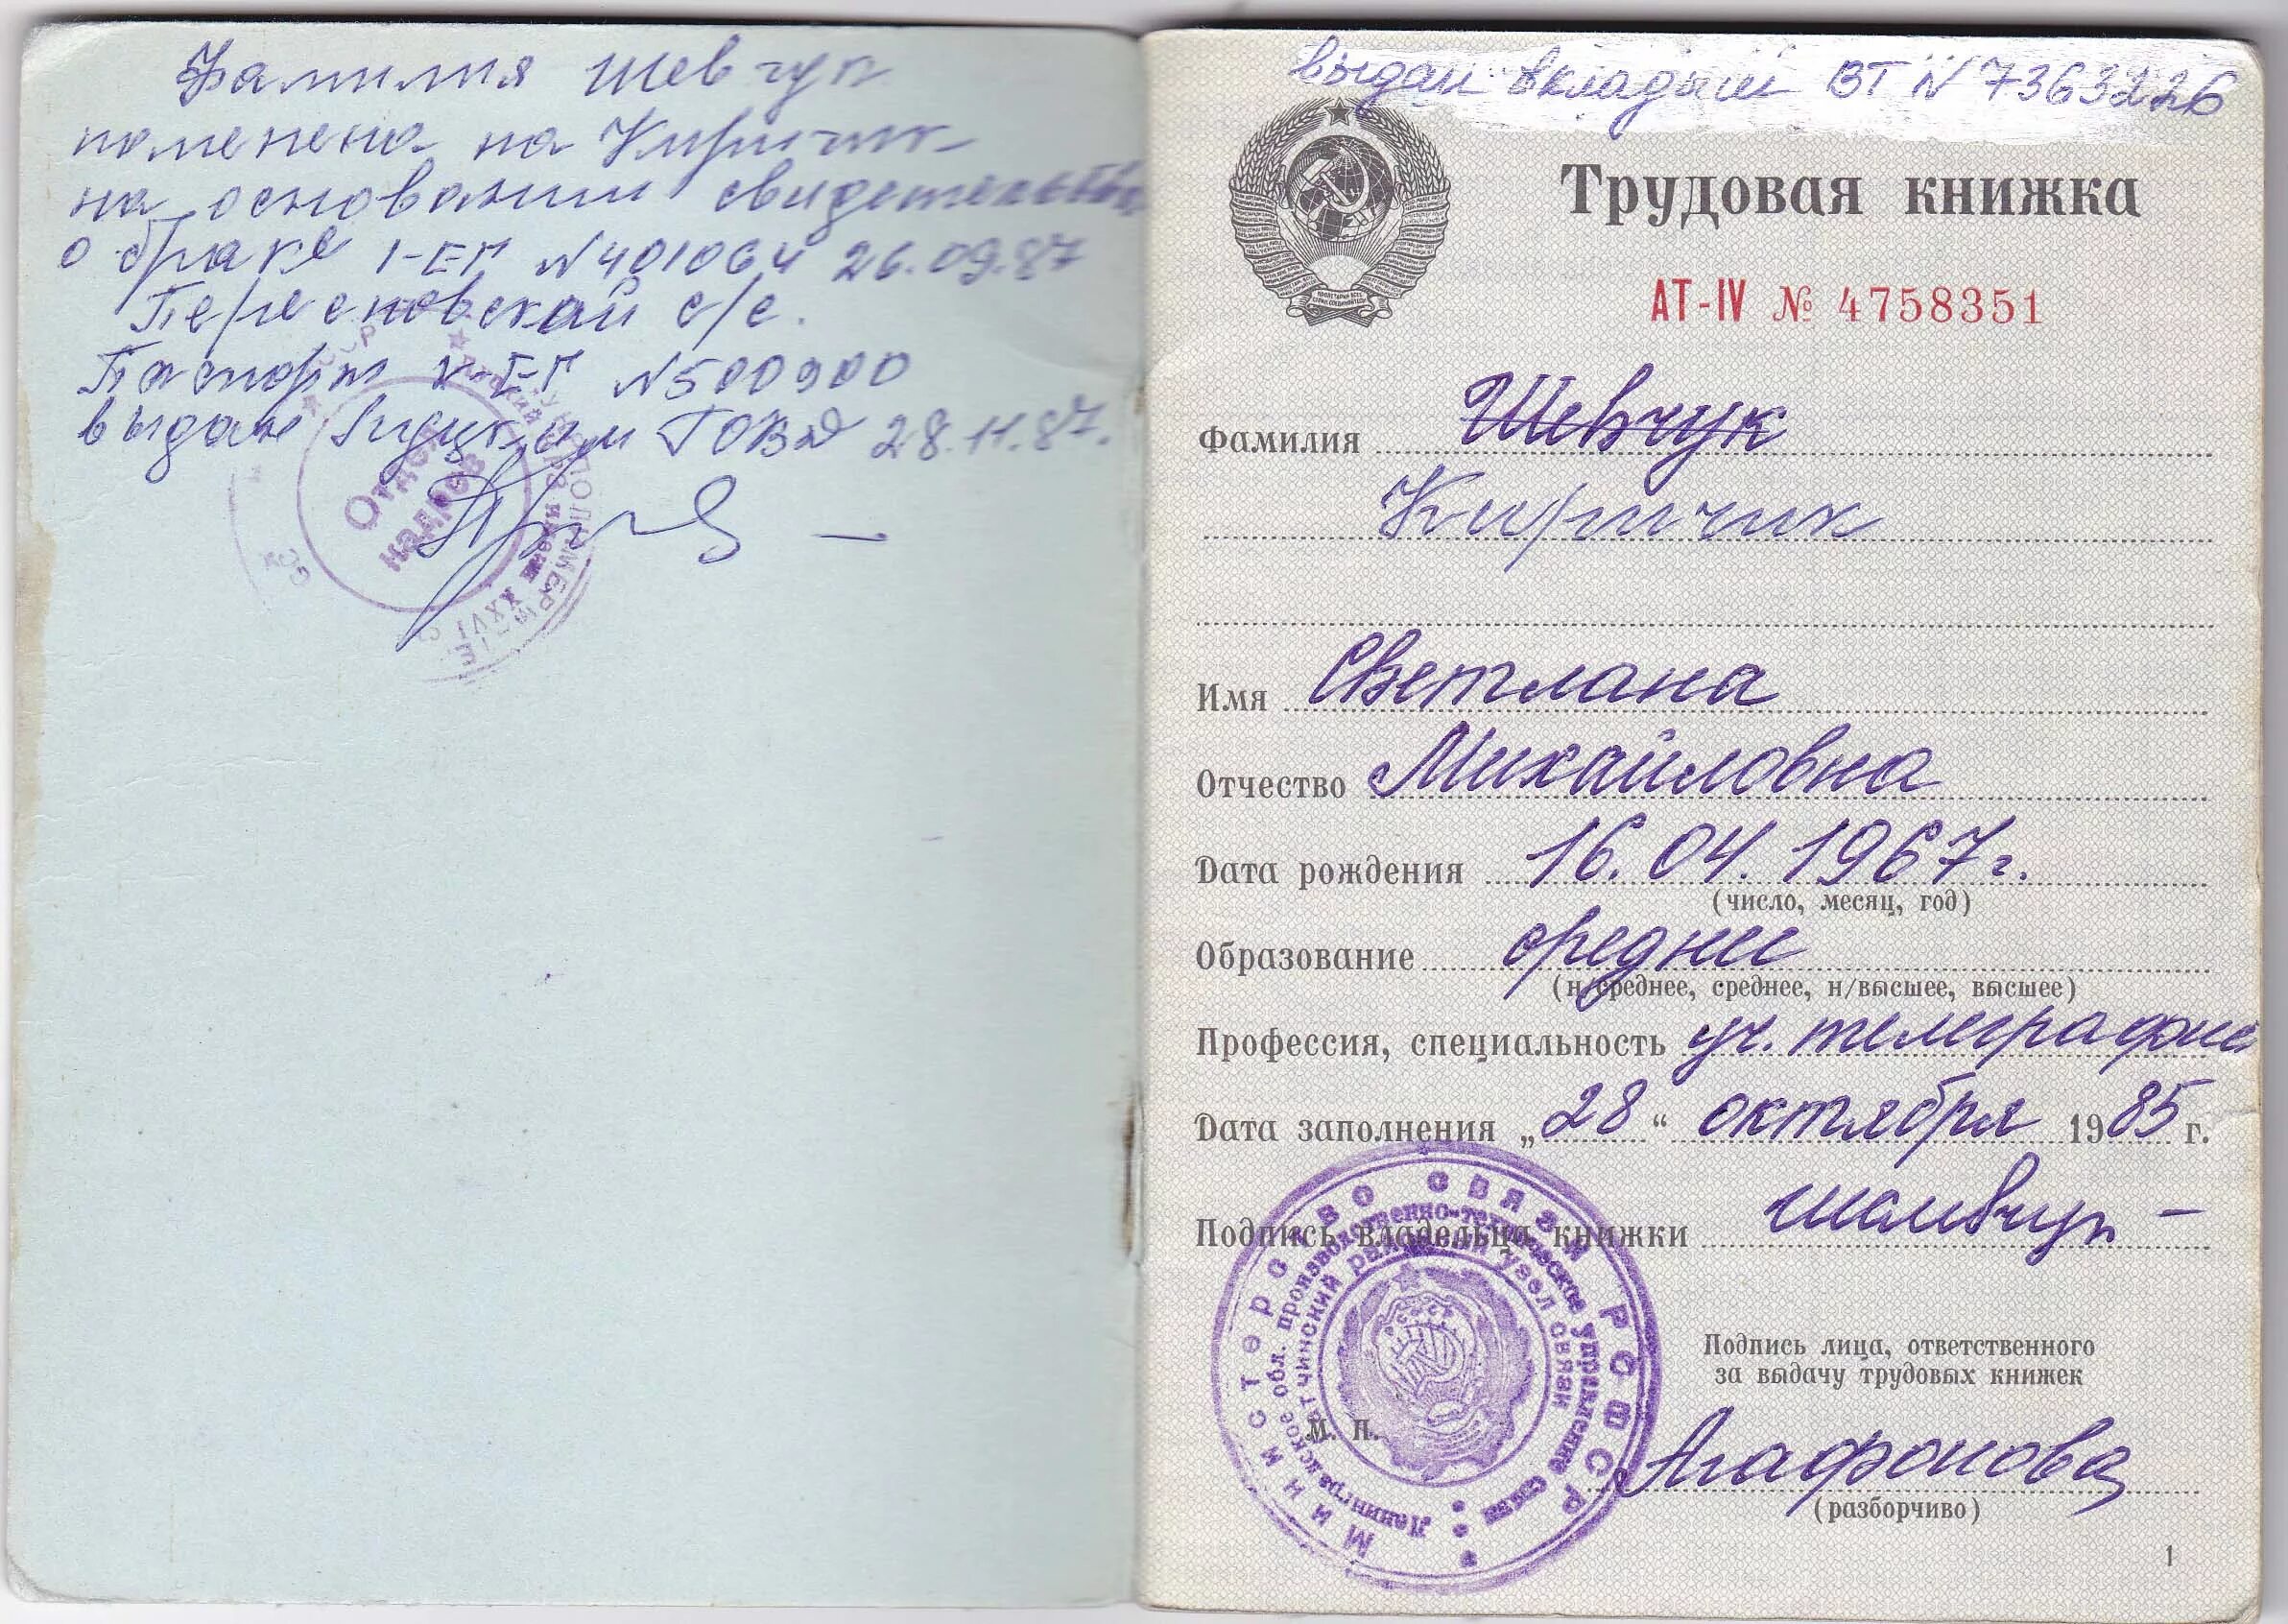 Фамилия Шевчук
поменена на Кирпчик
на основании свидетельства
о браке I-ЕГ №401064 26.09.87
с/с.
Паспорт V-ЕГ №500900
выдан Луцким ГОВД 28.11.87.
Отдел
кадров
выдан вкладыш ВТ № 7363226
Трудовая книжка
АТ-IV № 4758351
Фамилия Шевчук
Кирпчик
Имя Светлана
Отчество Михайловна
Дата рождения 16.04.1967г.
(число, месяц, год)
Образование среднее
(н/среднее, среднее, н/высшее, высшее)
Профессия, специальность уч. телеграфис
Дата заполнения „28“ октября 1985 г.
Подпись владельца книжки
Подпись лица, ответственного
за выдачу трудовых книжек
М. П.
Агафонова
(разборчиво)
Министерство связи РСФСР
Ленинградское обл. производственно-техническое управление связи
Гатчинский районный узел связи
1